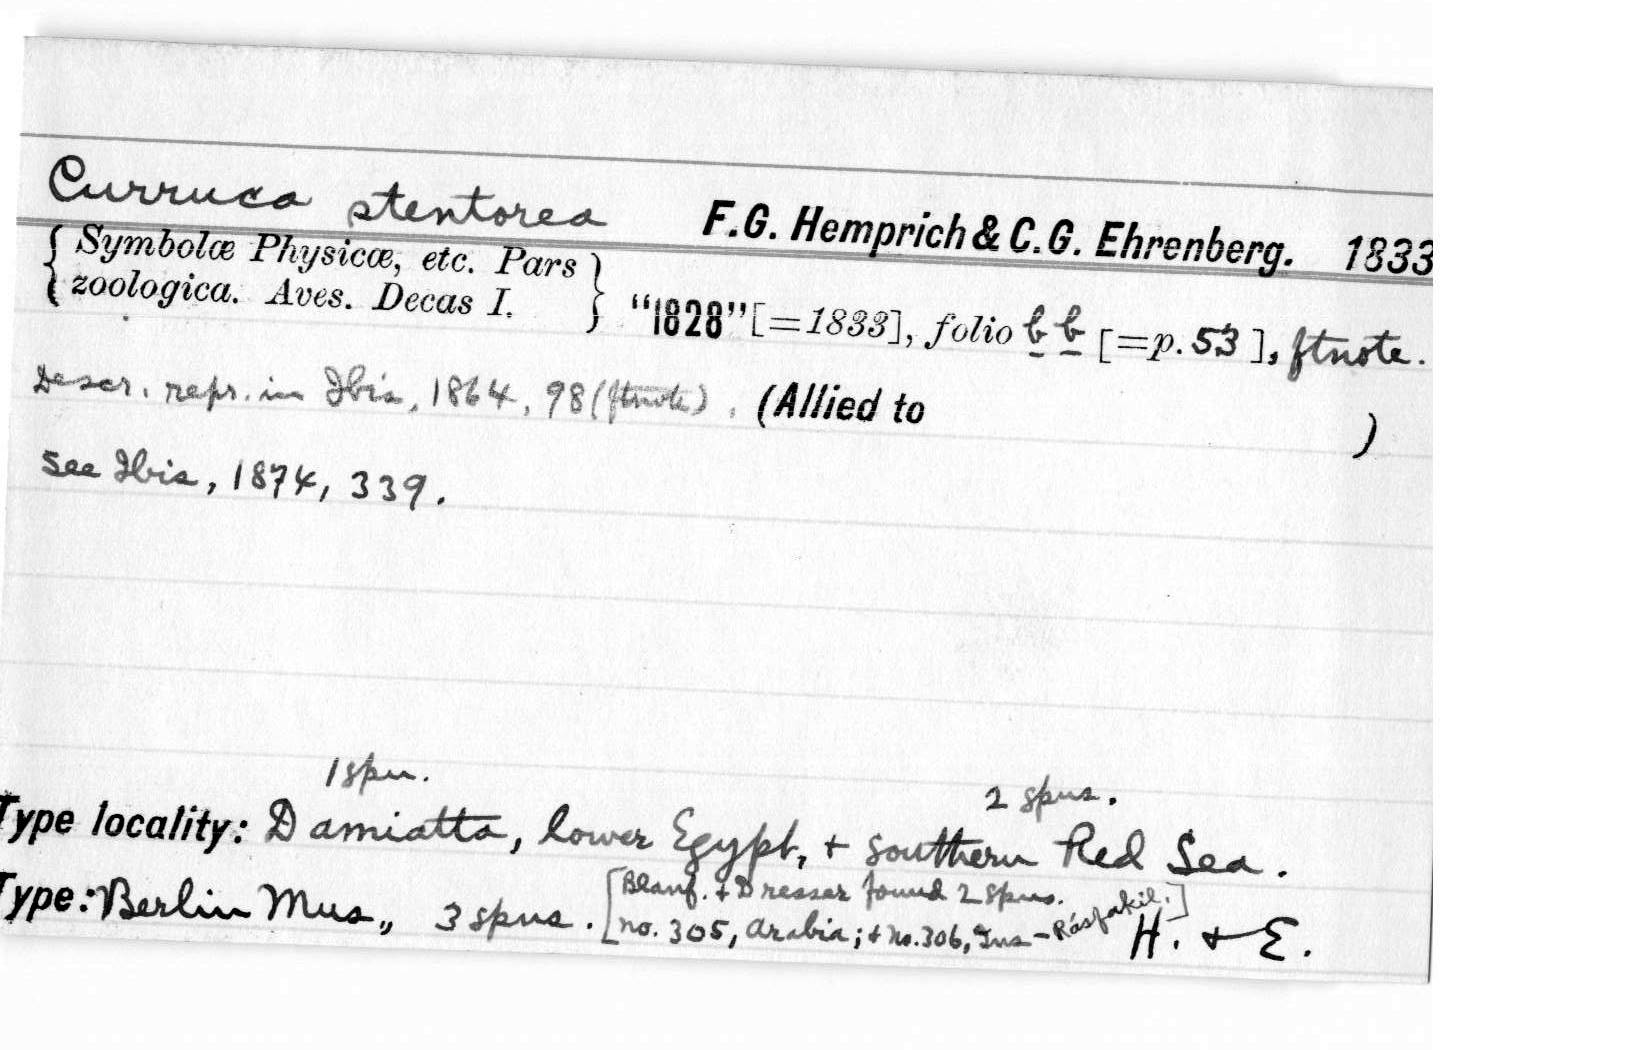 Curruca stentorea F.G. Hemprich & C.G. Ehrenberg. 1833
{ Symbolæ Physicæ, etc. Pars
zoologica. Aves. Decas I. } "1828" [=1833], folio b b [=p. 53], ftnote.
Descr. repr. in Ibis, 1864, 98 (ftnote). (Allied to )
see Ibis, 1874, 339.
1 spn. 2 spns.
Type locality: Damiatta, lower Egypt, + southern Red Sea.
Type: Berlin Mus., 3 spns. [Blanf. + Dresser found 2 spns.
no. 305, Arabia; + no. 306, Ins-] H. + E.